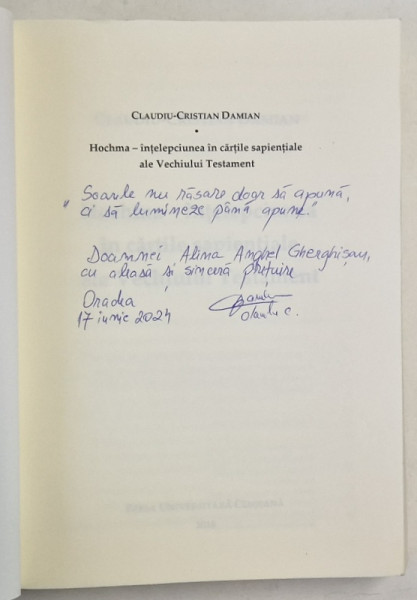 CLAUDIU-CRISTIAN DAMIAN
•
Hochma – înțelepciunea în cărțile sapiențiale
ale Vechiului Testament
"Soarele nu răsare doar să apună,
ci să lumineze până apune."
Doamnei Alina Anghel Gherghișan,
cu aleasă și sinceră prețuire
Oradea
17 iunie 2024